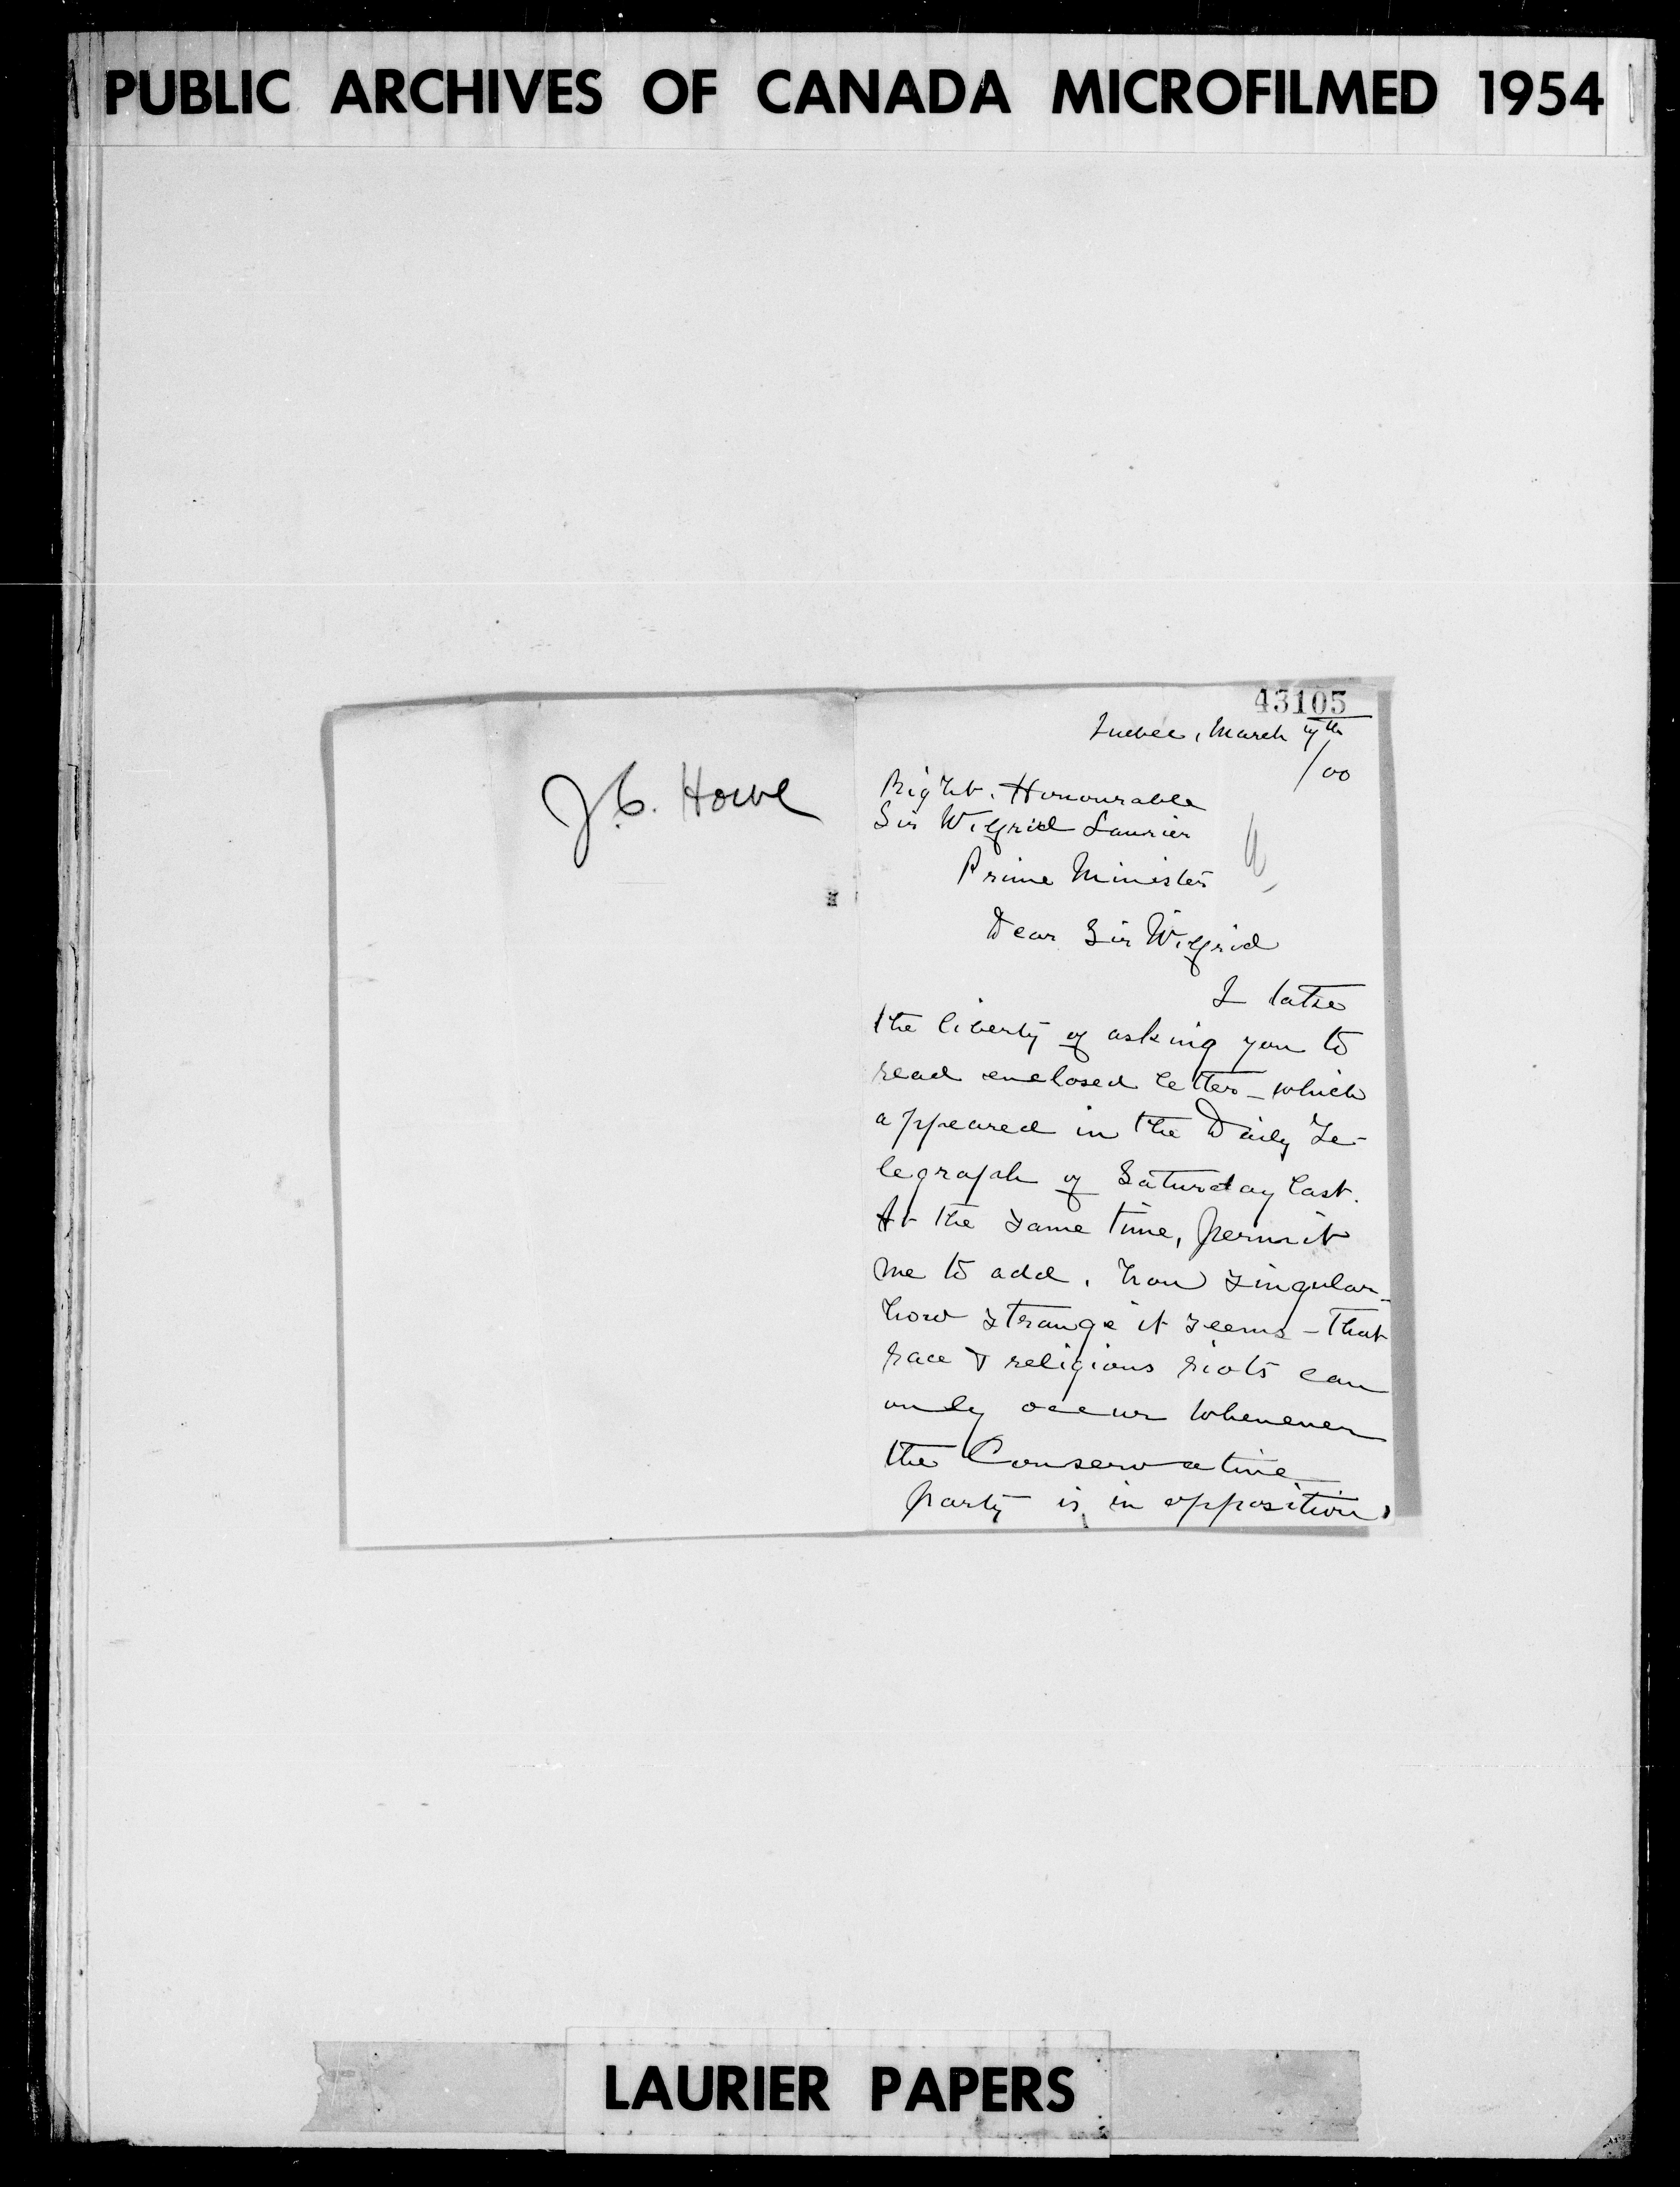 PUBLIC ARCHIVES OF CANADA MICROFILMED 1954
43105
Quebec, March
/00
J.C. Howe
Right. Honourable
Sir Wilfrid Laurier
Prime Minister
Dear Sir Wilfrid
I take
the liberty of asking you to
read enclosed letter - which
appeared in the Daily Te-
legraph of Saturday last.
At the same time, permit
me to add, how singular -
how strange it seems - that
race & religious riots can
only occur whenever
the Conservative
party is in opposition,
LAURIER PAPERS